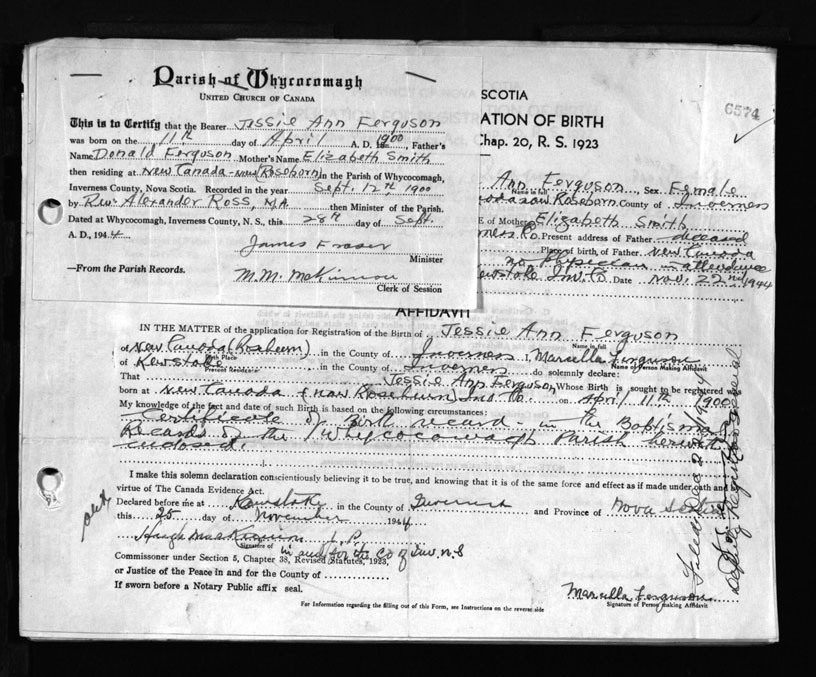 Parish of Whycocomagh
UNITED CHURCH OF CANADA
This is to Certify that the Bearer Jessie Ann Ferguson
was born on the 11th day of April A. D. 1900, Father's
Name Donald Ferguson Mother's Name Elizabeth Smith
then residing at New Canada - now (Roseburn) in the Parish of Whycocomagh,
Inverness County, Nova Scotia. Recorded in the year Sept. 12th, 1900
by Rev. Alexander Ross, M.A. then Minister of the Parish.
Dated at Whycocomagh, Inverness County, N. S., this 28th day of Sept.
A. D., 1944.
James Fraser
Minister
—From the Parish Records.
M. M. McKinnon
Clerk of Session
SCOTIA
ATION OF BIRTH
Chap. 20, R. S. 1923
6574
Ann Ferguson Sex Female
Name in full
Roseburn County of Inverness
E of Mother Elizabeth Smith
ness Co. Present address of Father deceased
Place of birth, of Father New Canada
no physician in attendance
ewstoke Inv. Co. Date Nov. 22nd 1944
AFFIDAVIT
IN THE MATTER of the application for Registration of the Birth of Jessie Ann Ferguson
Name in full
of New Canada (Roseburn) in the County of Inverness I, Marcella Ferguson
Birth Place
Name of Person Making Affidavit
of Kewstoke, in the County of Inverness do solemnly declare:
Present Residence
That Jessie Ann Ferguson Whose Birth is sought to be registered was
born at New Canada (now Roseburn) Inv. Co. on April 11th 1900
My knowledge of the fact and date of such Birth is based on the following circumstances:
Certificate of Birth record - in the Baptismal
Records of the Whycocomagh Parish herewith
enclosed.
I make this solemn declaration conscientiously believing it to be true, and knowing that it is of the same force and effect as if made under oath and by
virtue of The Canada Evidence Act.
Declared before me at Kewstoke in the County of Inverness and Province of Nova Scotia
this 25 day of November 1944
Hugh MacKinnon J. P.
Signature of
in and for the Co of Inv. N.S
Commissioner under Section 5, Chapter 38, Revised Statutes, 1923,
or Justice of the Peace in and for the County of
If sworn before a Notary Public affix seal.
Marcella Ferguson
Signature of Person making Affidavit
For Information regarding the filling out of this Form, see Instructions on the reverse side
Filed Dec 2 1944
Deputy Registrar General